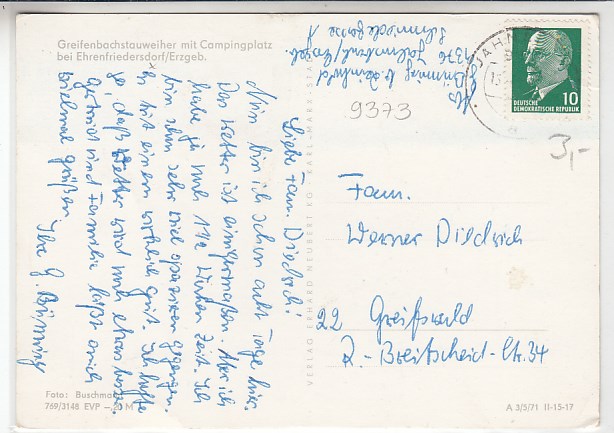 Greifenbachstauweiher mit Campingplatz
bei Ehrenfriedersdorf/Erzgeb.
Liebe Fam. Diedrich!
Nun bin ich schon acht Tage hier.
Das Wetter ist einigermaßen. Aber ich
habe ja noch Wochen Zeit. Ich
bin schon sehr viel spazieren gegangen.
Es tut einem wirklich gut. Ich hoffe
ja, daß Wetter wird noch etwas besser.
Gertrud und Familie läßt auch
vielmal grüßen.
Ihre G. Brüning
Foto: Buschmann
769/3148 EVP –,20 M
VERLAG ERHARD NEUBERT KG · KARL-MARX-STADT
Abs
Brüning b. Reinhold
9376 Jahnsbach/Erzgeb.
Schmiedegasse 1
JAHNS
DEUTSCHE
DEMOKRATISCHE REPUBLIK
10
9373
3,-
Fam.
Werner Diedrich
22 Greifswald
R.-Breitscheid-Str. 34
A 3/5/71 II-15-17